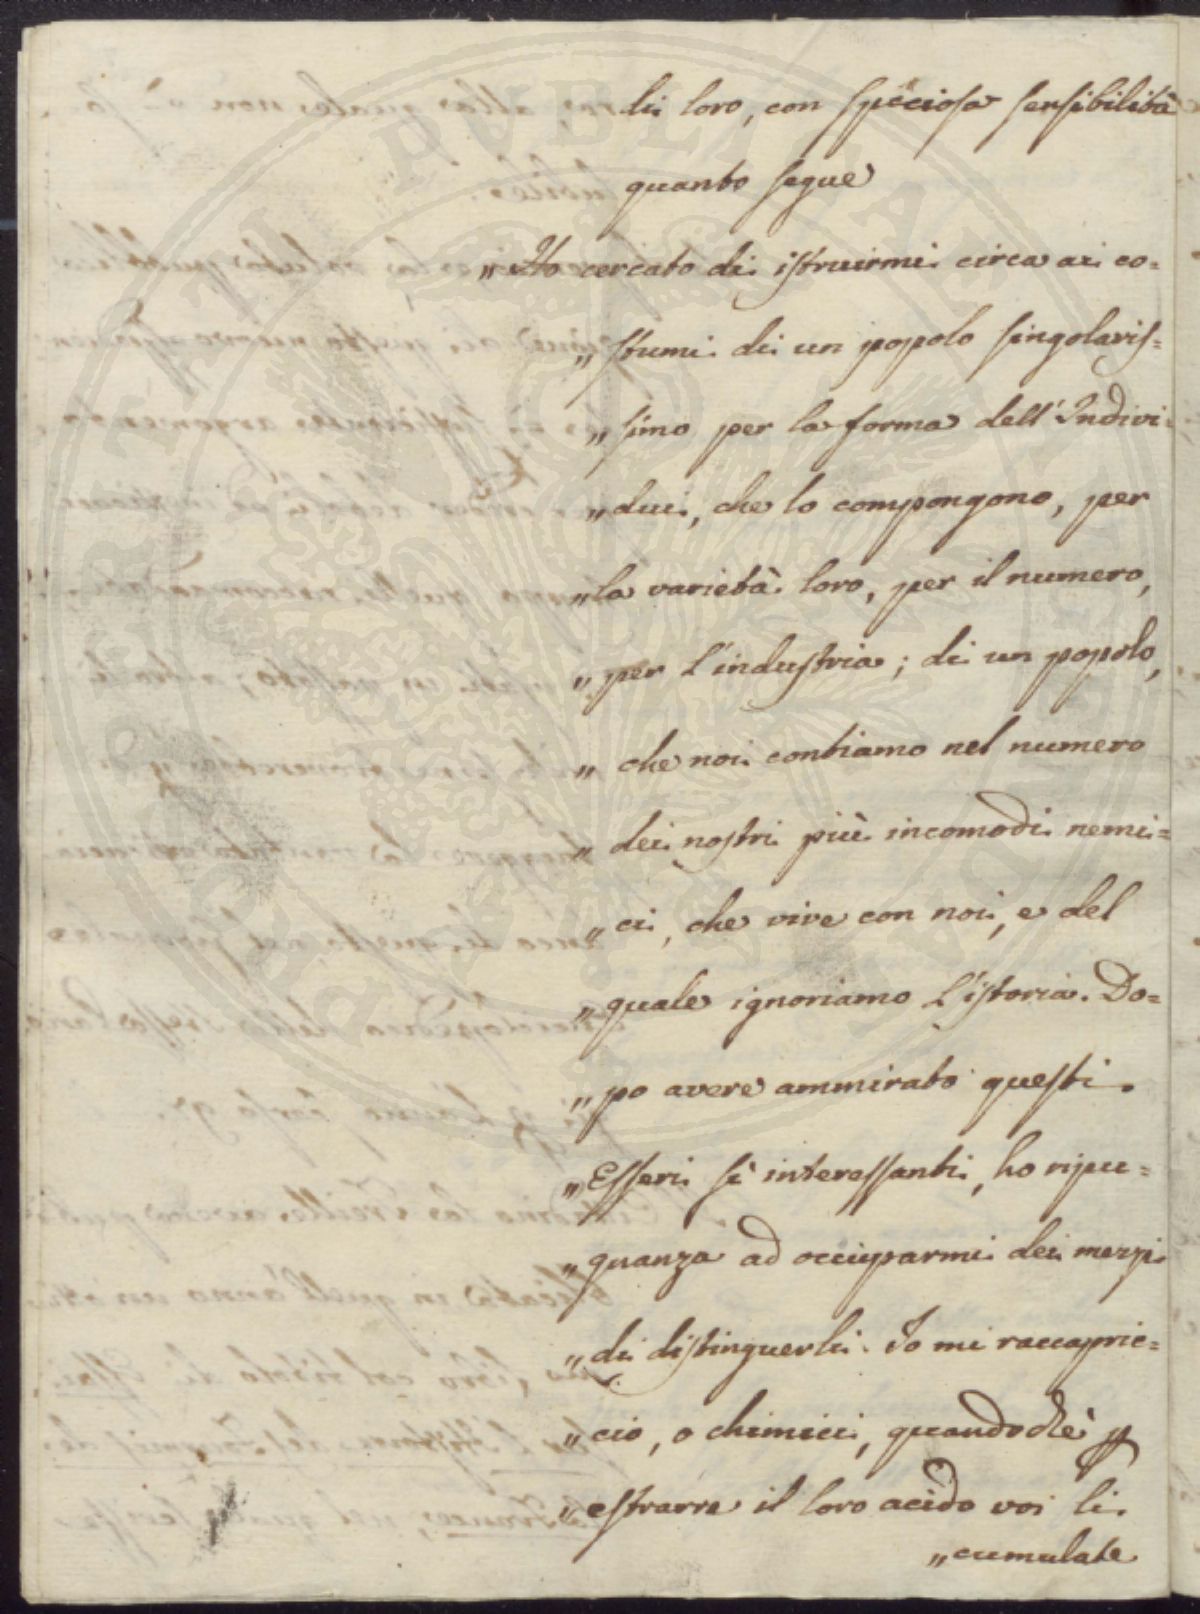 di loro, con speciosa sensibilità
quanto segue
„ Ho cercato di istruirmi circa ai co=
„ stumi di un popolo singolaris=
„ simo per la forma dell'Indivi=
„ dui, che lo compongono, per
„ la varietà loro, per il numero,
„ per l'industria; di un popolo,
„ che noi contiamo nel numero
„ dei nostri più incomodi nemi=
„ ci, che vive con noi, e del
„ quale ignoriamo l'istoria. Do=
„ po avere ammirato questi
„ Esseri sì interessanti, ho ripu=
„ gnanza ad occuparmi dei mezzi
„ di distinguerli. Io mi raccapric=
„ cio, o chimici, quandochè p
„ estrarre il loro acido voi li
„ cumulate